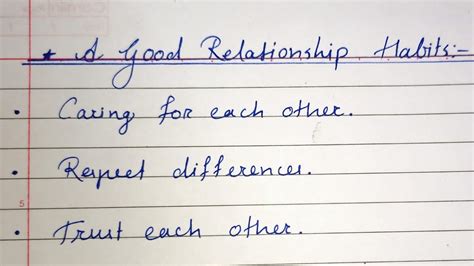 * A Good Relationship Habits:-
• Caring for each other.
• Respect differences.
• Trust each other.